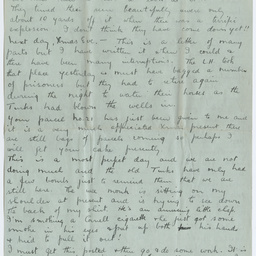 They lined them were beautifully more only
about 10 yards off it when there was a terrific
explosion. I don't think they have come down yet!!
Next day, Xmas Eve — This is a letter of many
parts but I have written it when I could &
there have been many interruptions. The LH took
place yesterday & must have bagged a number
of prisoners but they had to return again
during the night to water their horses as the
Turks had blown the wells in
Your parcel has just been given to me and
it is a very much appreciated Xmas present there
are still bags of parcels coming so perhaps I
will get your cake presently
This is a most perfect day and we are not
doing much and the old Turks have only had
a few bombs just to remind them that we are
still here. The monk is sitting on my
shoulder at present and is trying to
the back of my shirt. He's an amusing little chap
I'm smoking a cigar & he just got some
smoke in his eyes & put up both his hands
& tried to pull it out!
I must get this posted & do some work. It is